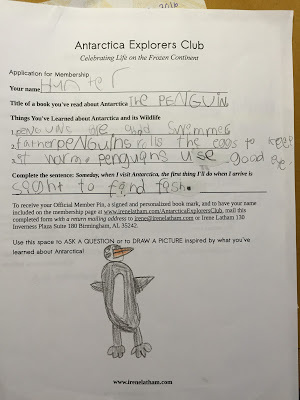 Antarctica Explorers Club
Celebrating Life on the Frozen Continent
Application for Membership
Your name Hunter
Title of a book you've read about Antarctica The PENGUIN
Things You've Learned about Antarctica and its Wildlife
1. penguins are good swimmer
2. father penguins rolls the eggs to keep
3. penguins use good eye
Complete the sentence: Someday, when I visit Antarctica, the first thing I'll do when I arrive is
sight to find fish.
To receive your Official Member Pin, a signed and personalized book mark, and to have your
included on the membership page at www.irenelatham.com/AntarcticaExplorersClub, mail this
completed form with a return mailing address to irene@irenelatham.com or Irene Latham 130
Inverness Plaza Suite 180 Birmingham, AL 35242.
Use this space to ASK A QUESTION or to DRAW A PICTURE inspired by what you've
learned about Antarctica!
www.irenelatham.com